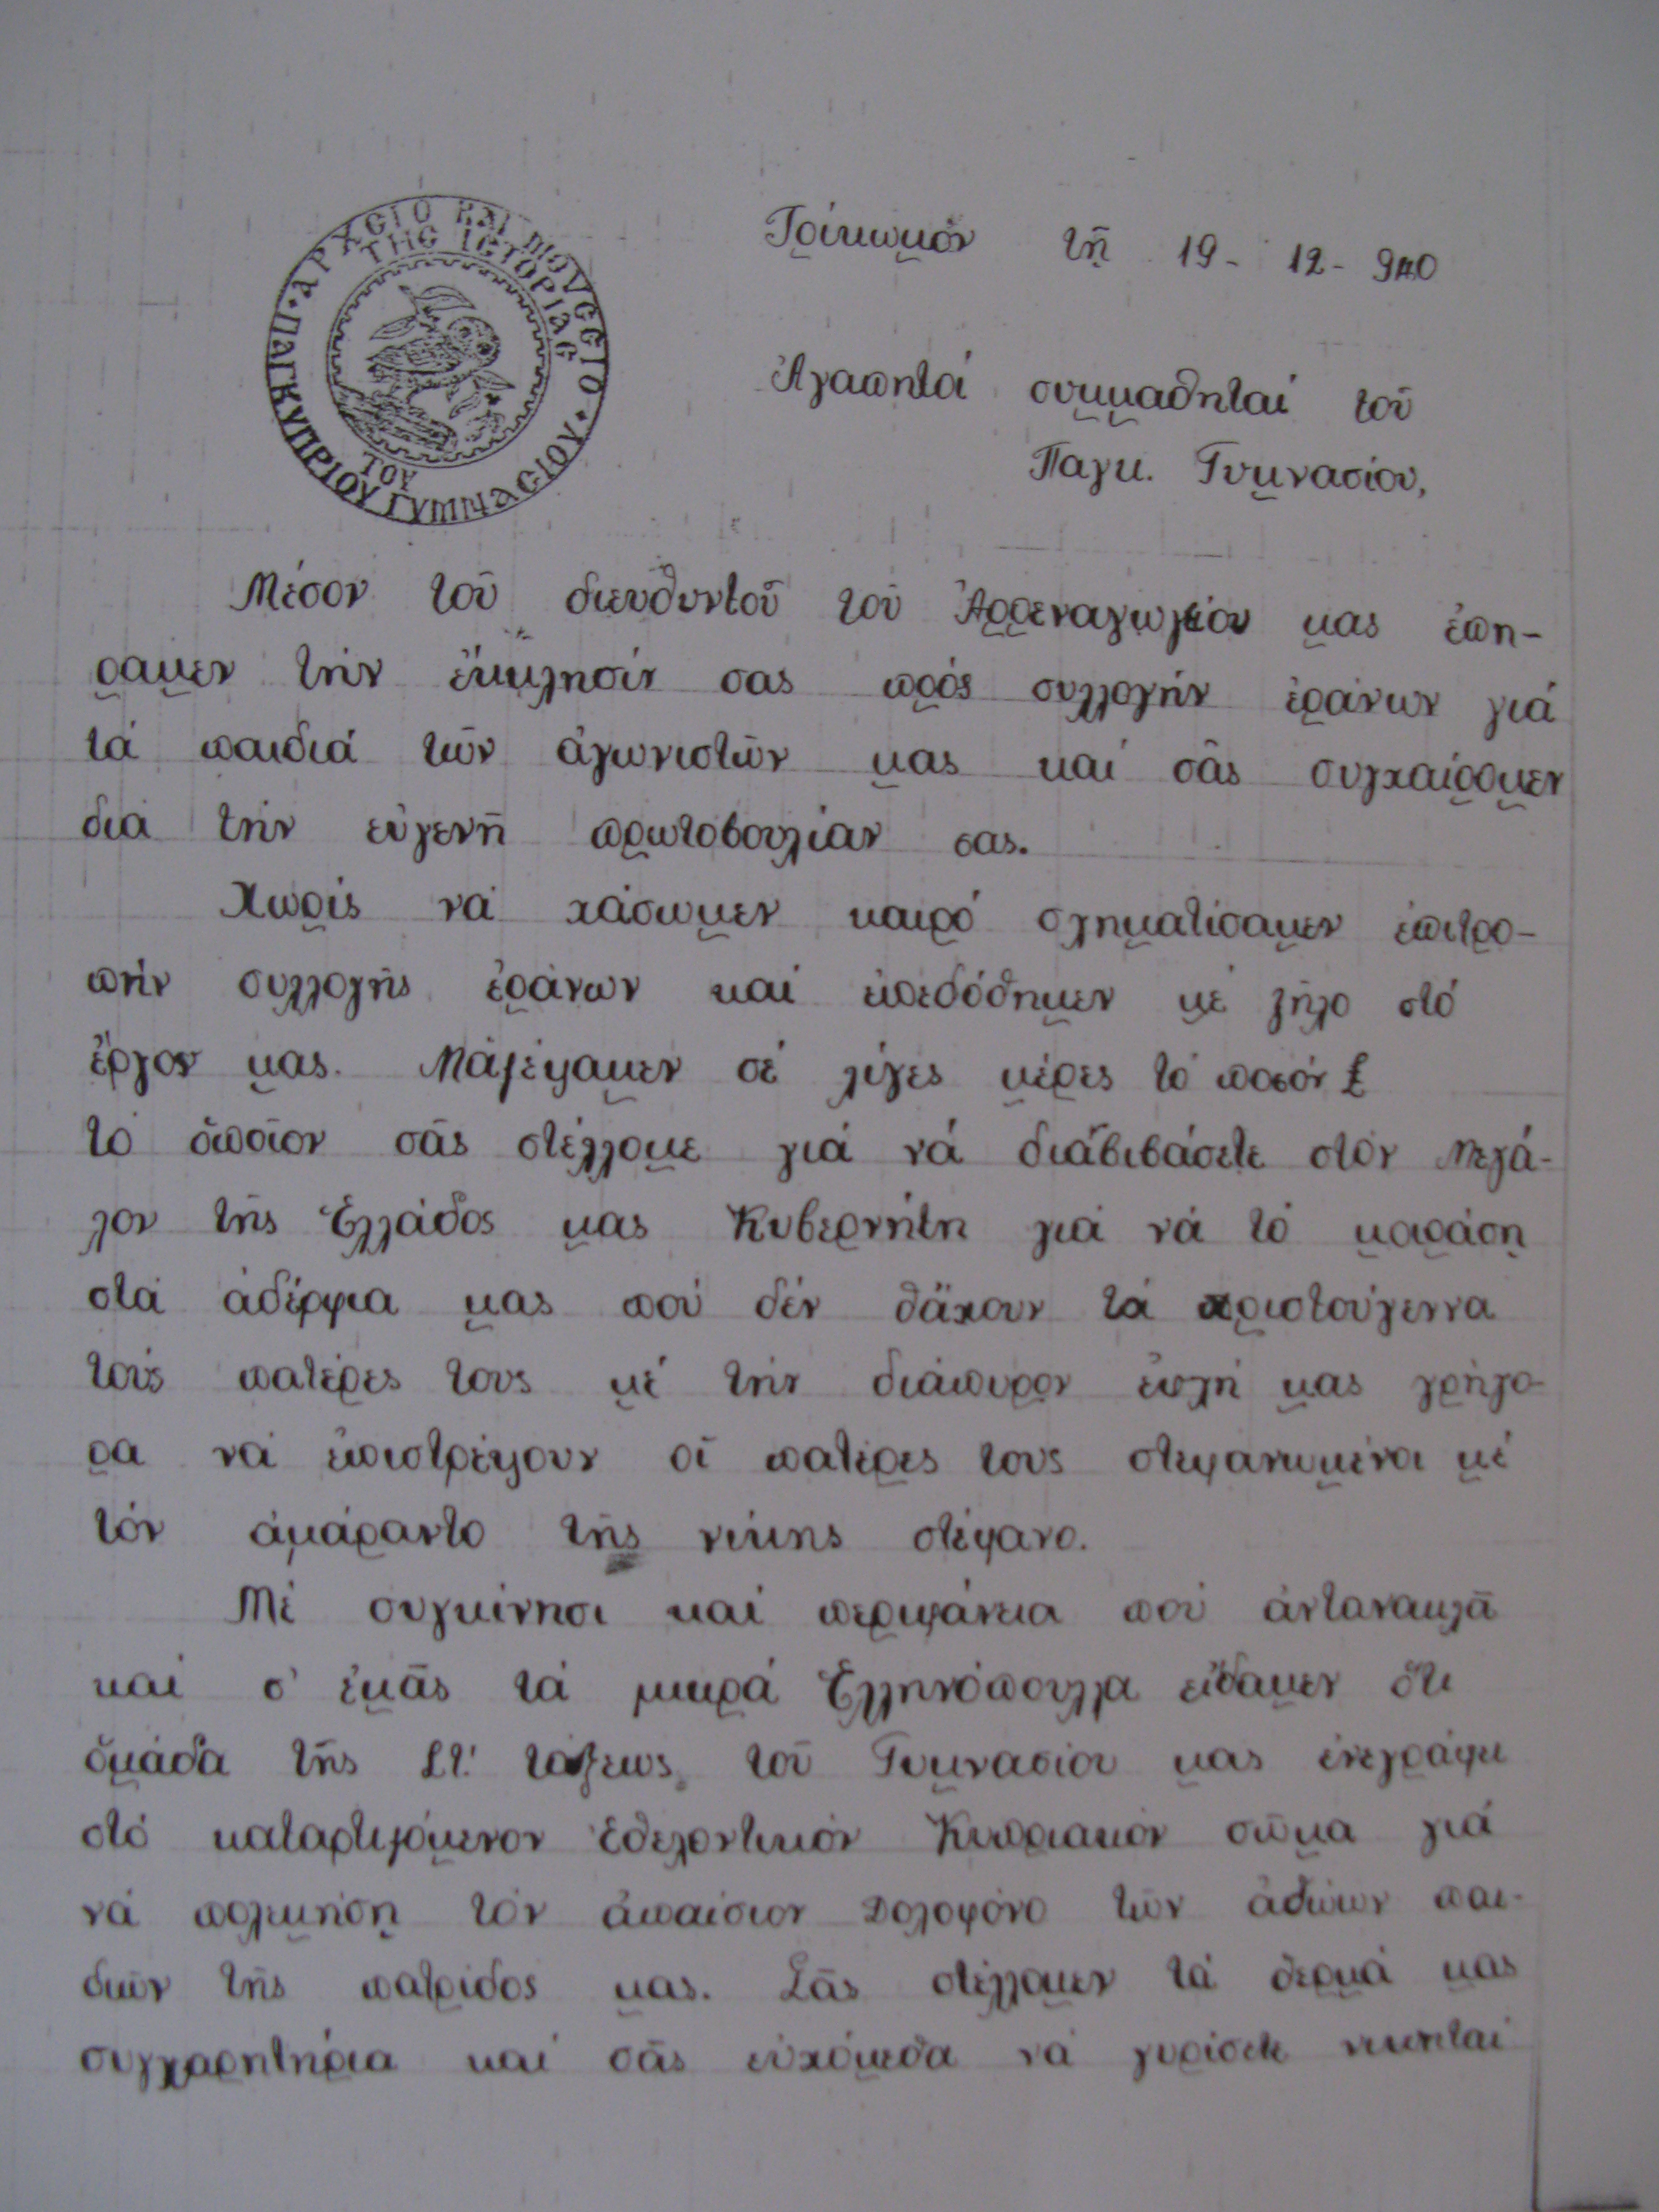 ΑΡΧΕΙΟ ΚΑΙ ΜΟΥΣΕΙΟ
ΤΗΣ ΙΣΤΟΡΙΑΣ
ΤΟΥ
ΠΑΓΚΥΠΡΙΟΥ ΓΥΜΝΑΣΙΟΥ
Τρίκωμον τῇ 19- 12- 940
Ἀγαπητοί συμμαθηταί τοῦ
Παγκ. Γυμνασίου,
Μέσον τοῦ διευθυντοῦ τοῦ Ἀρρεναγωγείου μας ἐπή-
ραμεν τήν ἔκκλησίν σας πρός συλλογήν ἐράνων γιά
τά παιδιά τῶν ἀγωνιστῶν μας καί σᾶς συγχαίρομεν
διά τήν εὐγενῆ πρωτοβουλίαν σας.
Χωρίς νά χάσωμεν καιρό σχηματίσαμεν ἐπιτρο-
πήν συλλογῆς ἐράνων καί ἐπεδόθημεν μέ ζῆλο στό
ἔργον μας. Μαζέψαμεν σέ λίγες μέρες τό ποσόν £
τό ὁποῖον σᾶς στέλλομε γιά νά διαβιβάσετε στόν Μεγά-
λον τῆς Ἑλλάδος μας Κυβερνήτη γιά νά τό μοιράση
στά ἀδέρφια μας πού δέν θἄχουν τά Χριστούγεννα
τούς πατέρες τους μέ τήν διάπυρον εὐχή μας γρήγο-
ρα νά ἐπιστρέψουν οἱ πατέρες τους στεφανωμένοι μέ
τόν ἀμάραντο τῆς νίκης στέφανο.
Μέ συγκίνησι καί περιφάνεια πού ἀντανακλᾶ
καί σ' ἐμᾶς τά μικρά Ἑλληνόπουλλα εἴδαμεν ὅτι
ὁμάδα τῆς ΣΤ' τάξεως τοῦ Γυμνασίου μας ἐνεγράφη
στό καταρτιζόμενον Ἐθελοντικόν Κυπριακόν σῶμα γιά
νά πολεμήση τόν ἀπαίσιον Δολοφόνο τῶν ἀθώων παι-
διῶν τῆς πατρίδος μας. Σᾶς στέλλομεν τά θερμά μας
συγχαρητήρια καί σᾶς εὐχόμεθα νά γυρίσετε νικηταί